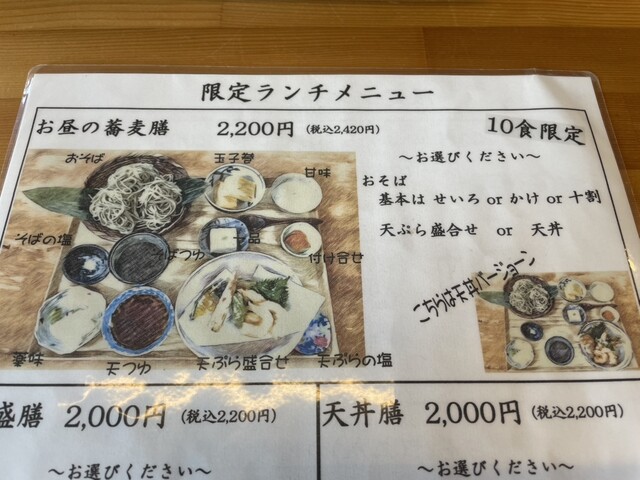 限定ランチメニュー
お昼の蕎麦膳 2,200円 (税込2,420円) 10食限定
～お選びください～
おそば
基本は せいろ or かけ or 十割
天ぷら盛合せ or 天丼
おそば 玉子巻 甘味
そばの塩 そばつゆ 一品 付け合せ
薬味 天つゆ 天ぷら盛合せ 天ぷらの塩
こちらは天丼バージョーン
盛膳 2,000円 (税込2,200円)
～お選びください～
天丼膳 2,000円 (税込2,200円)
～お選びください～